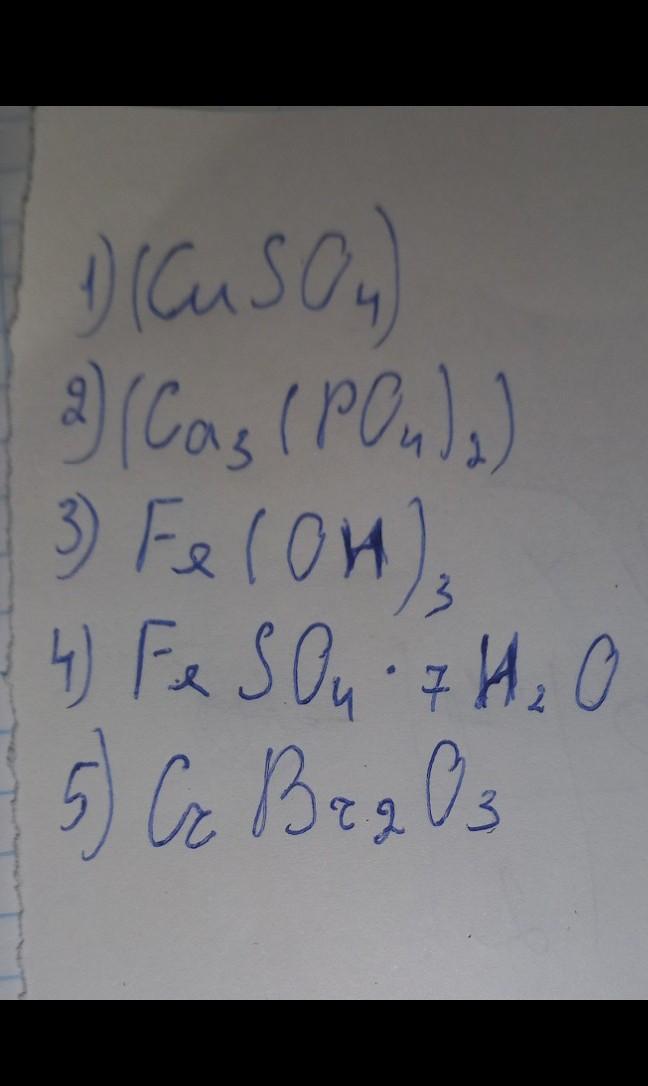 1) (CuSO₄)
2) (Ca₃(PO₄)₂)
3) Fe(OH)₃
4) FeSO₄ · 7H₂O
5) CrBr₂O₃